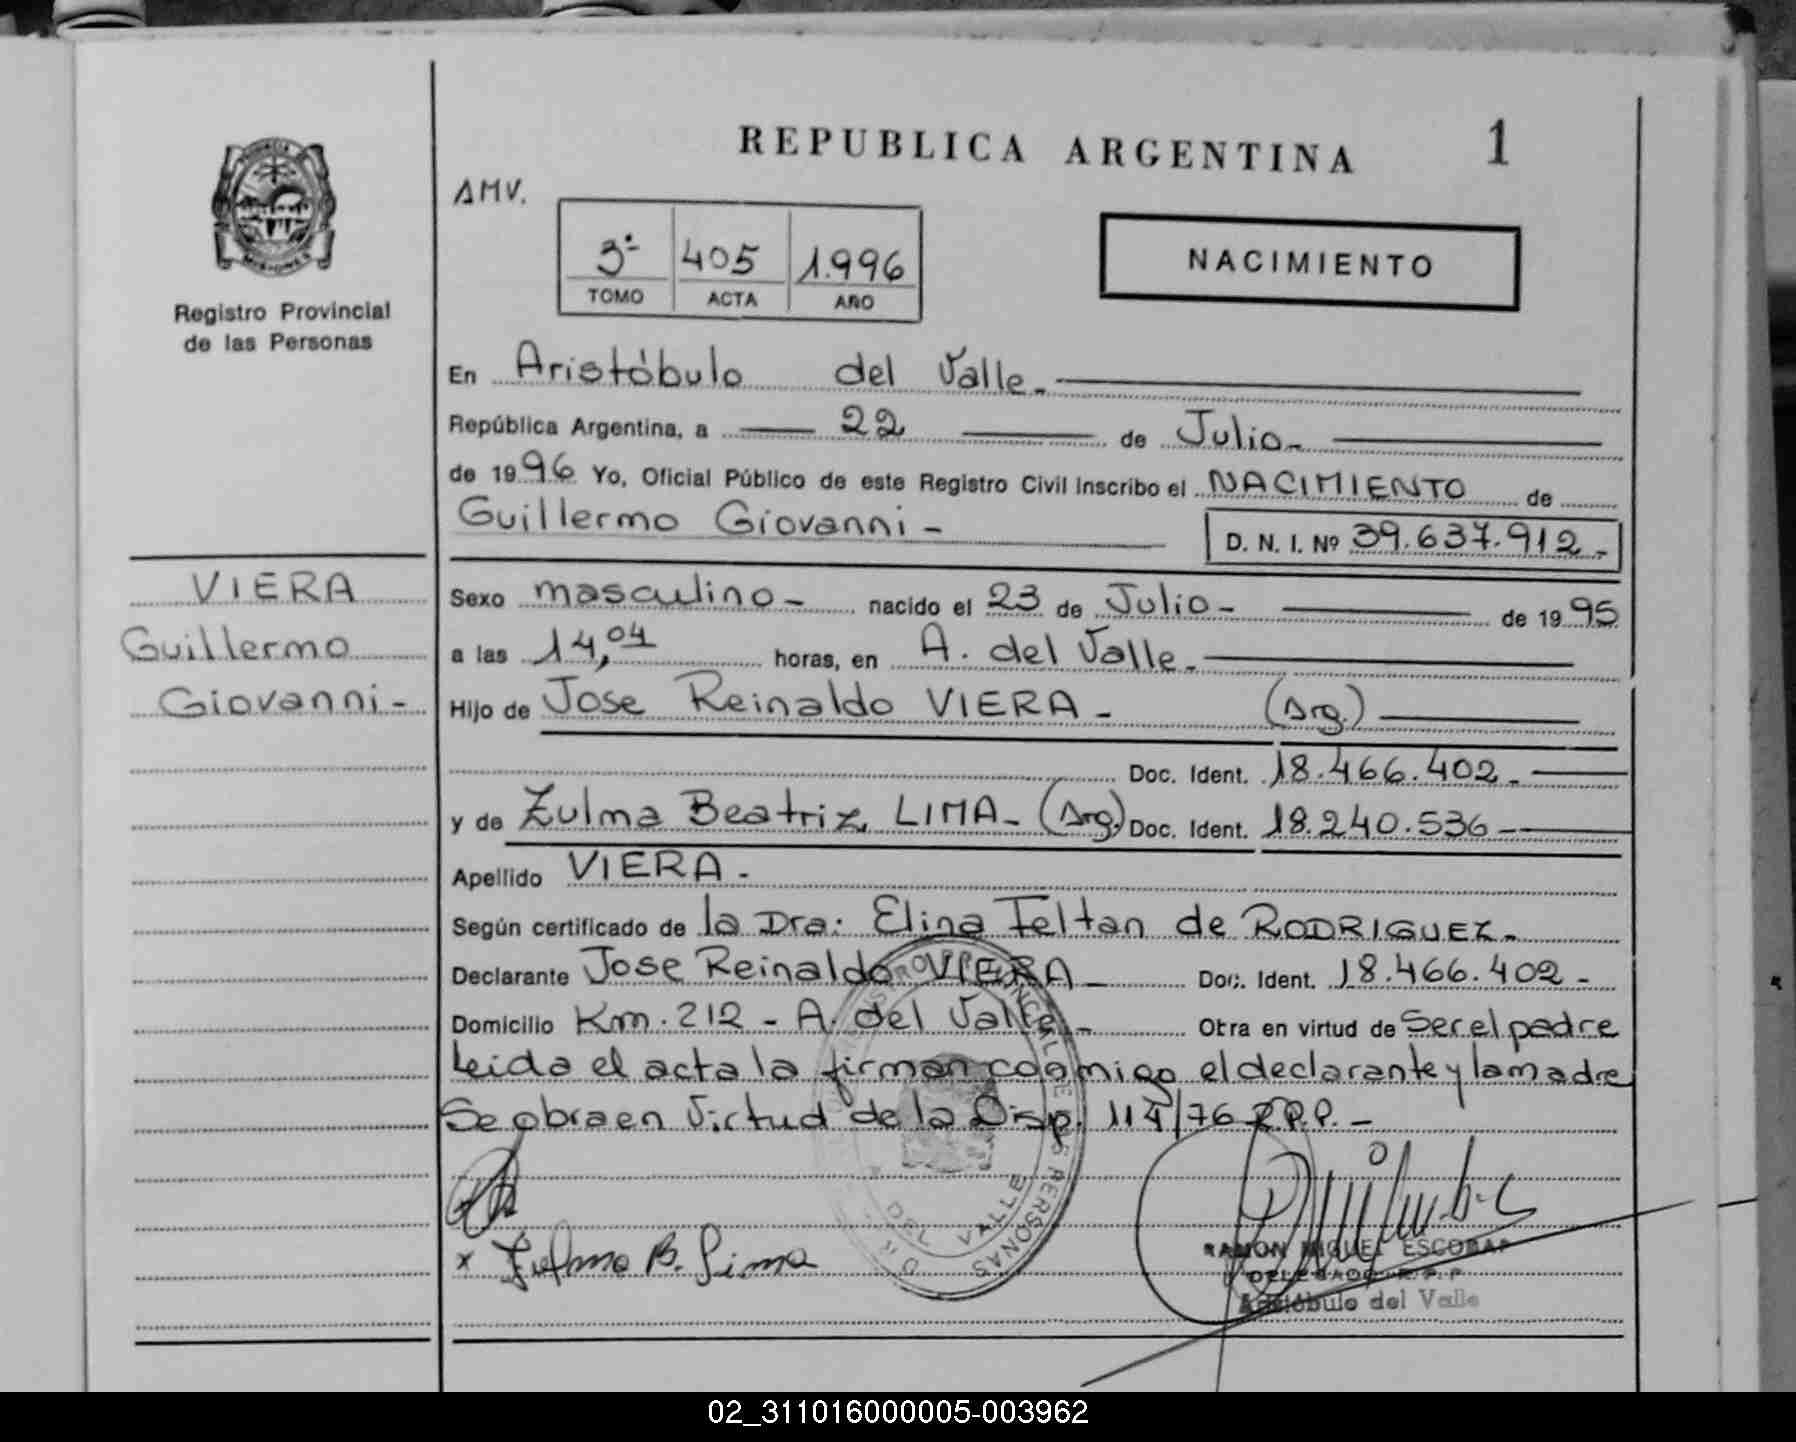 REPUBLICA ARGENTINA 1
AMV.
3º 405 1.996
TOMO ACTA AÑO
NACIMIENTO
PROVINCIA DE
MISIONES
Registro Provincial
de las Personas
En Aristóbulo del Valle.
República Argentina, a 22 de Julio-
de 1996 Yo, Oficial Público de este Registro Civil inscribo el NACIMIENTO de
Guillermo Giovanni - D. N. I. Nº 39.637.912-
VIERA
Guillermo
Giovanni-
Sexo masculino- nacido el 23 de Julio- de 1995
a las 14,04 horas, en A. del Valle.
Hijo de Jose Reinaldo VIERA - (Arg.)
Doc. Ident. 18.466.402-
y de Zulma Beatriz LIMA- (Arg.) Doc. Ident. 18.240.536-
Apellido VIERA-
Según certificado de la Dra. Elina Feltan de RODRIGUEZ-
Declarante Jose Reinaldo VIERA Doc. Ident. 18.466.402-
Domicilio Km. 212 - A. del Valle- Obra en virtud de Ser el padre
Leida el acta la firman conmigo el declarante y la madre
Se obra en Virtud de la Disp. 114/76 R.P.P.-
PROVINCIAL DE LAS PERSONAS
DEL VALLE
x Zulma B. Lima
RAMON MIGUEL ESCOBAR
DELEGADO R.P.P
Aristóbulo del Valle
02_311016000005-003962